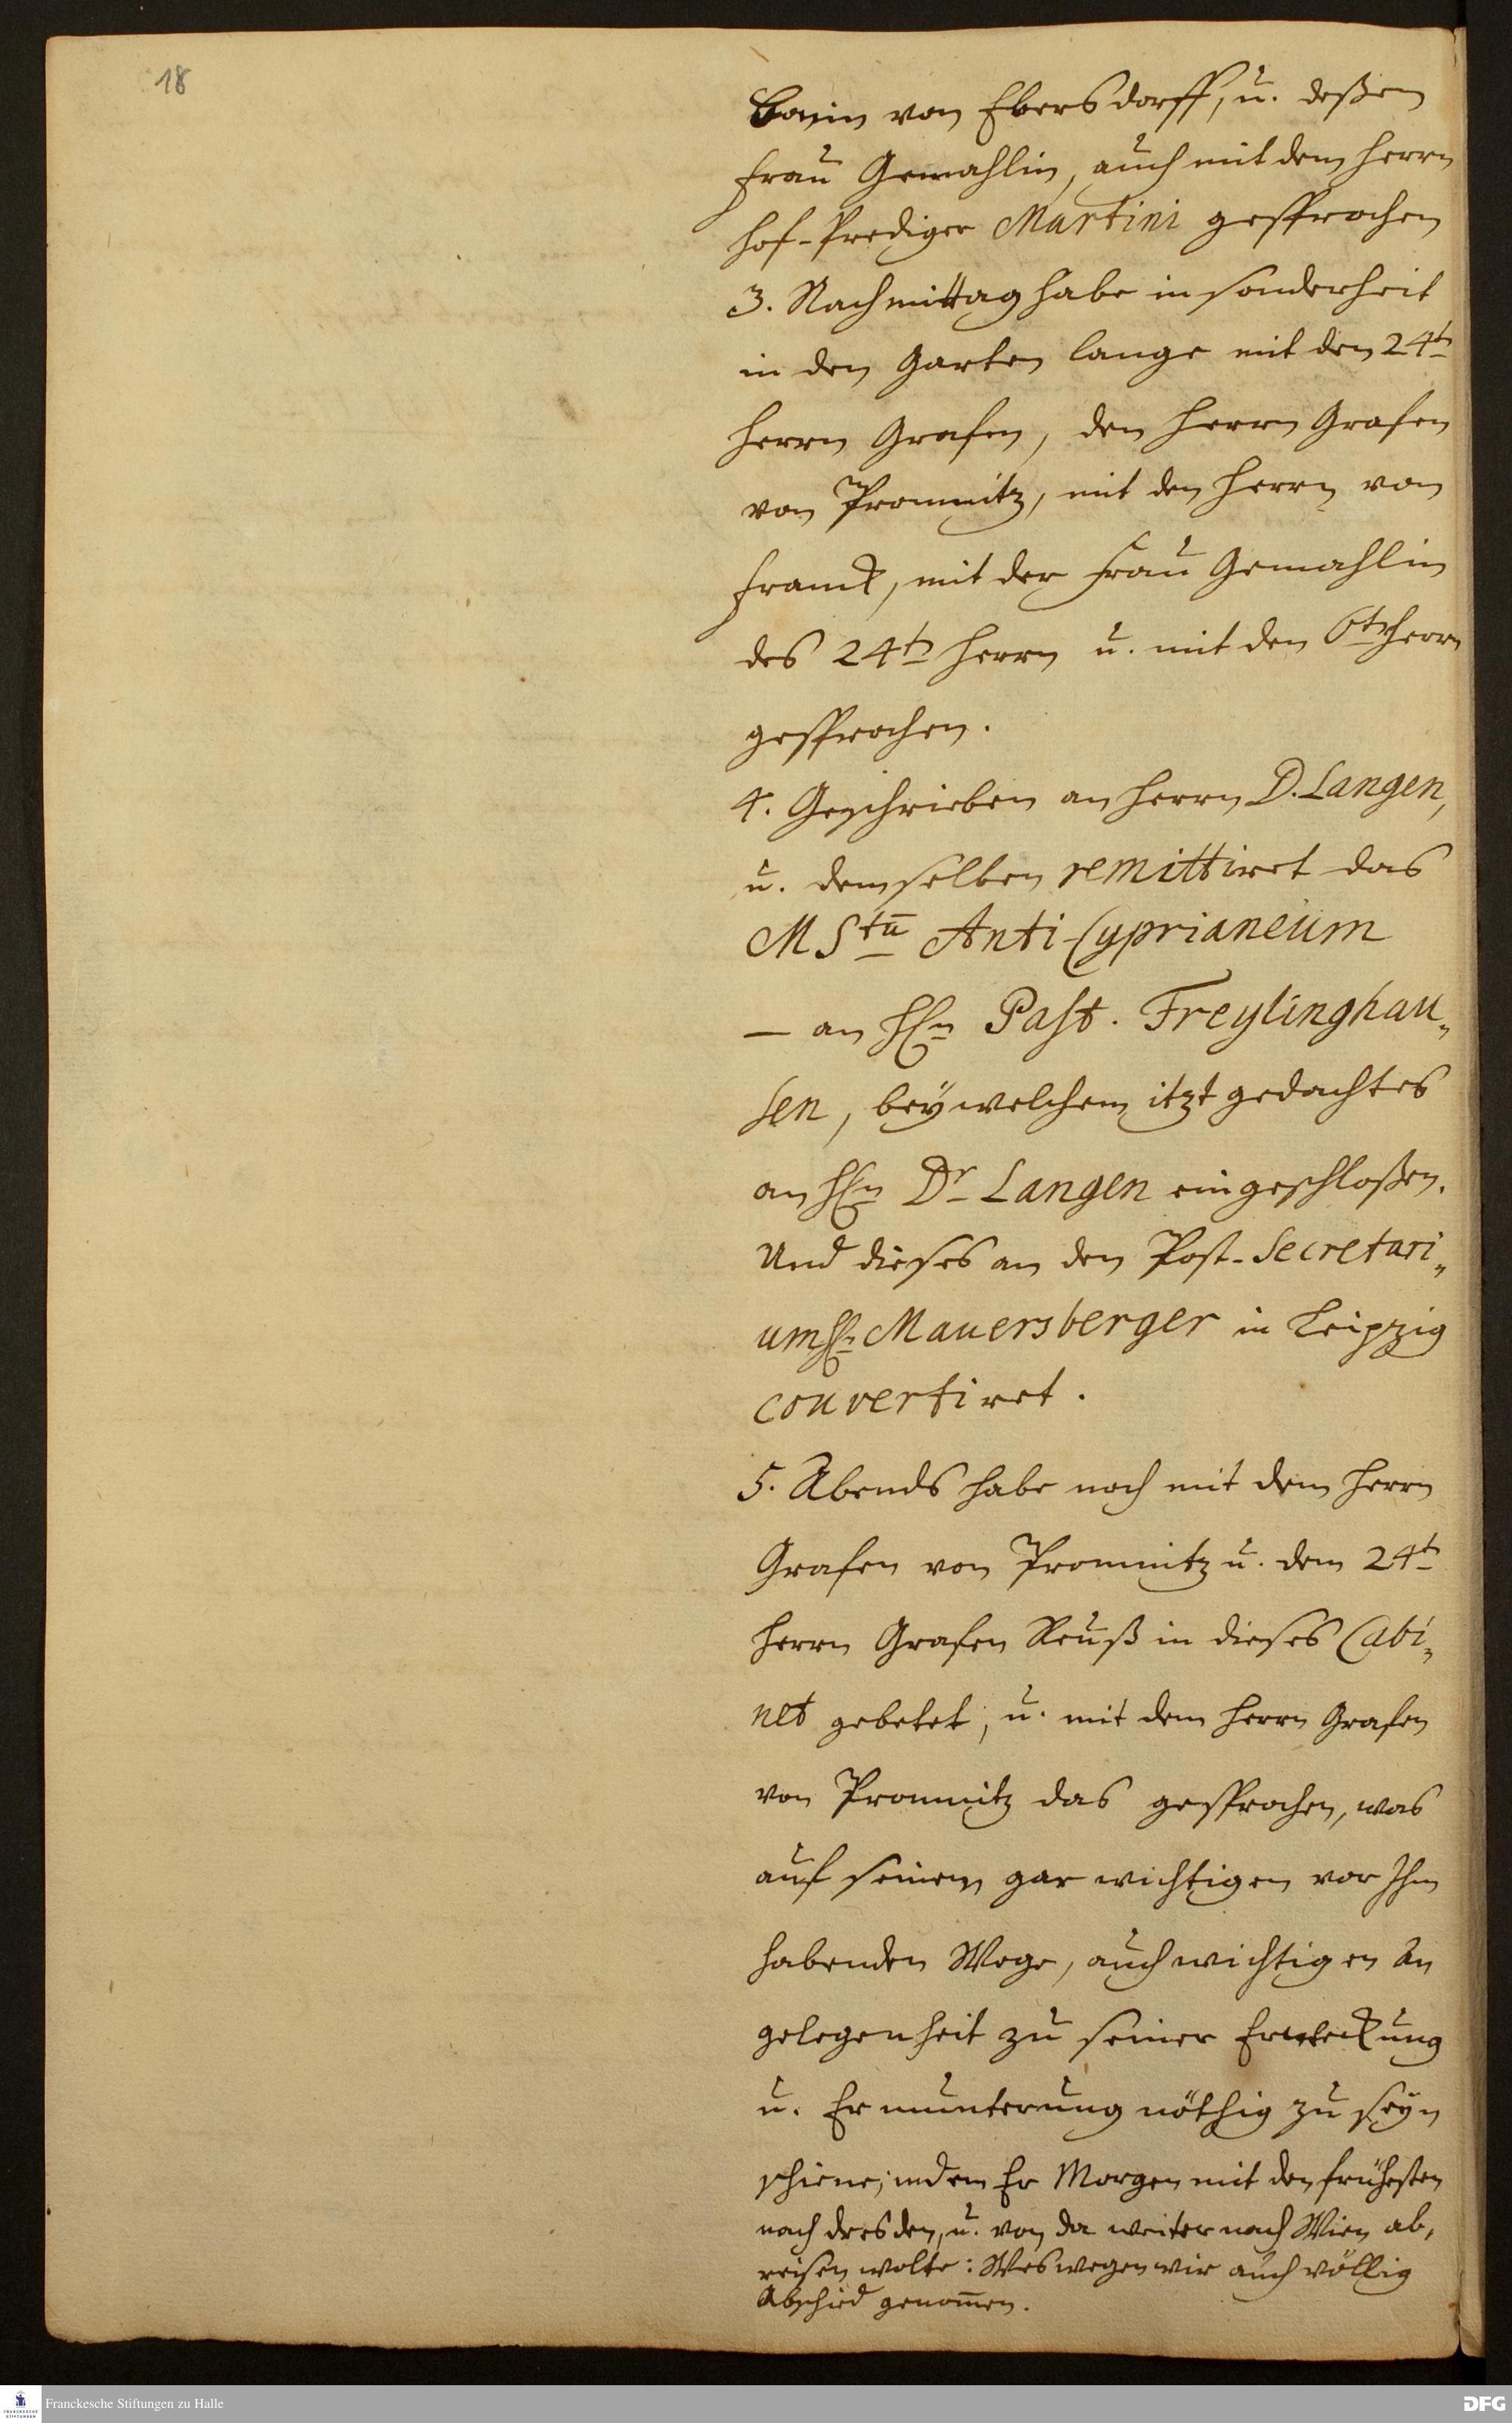 18
Bonin von Ebersdorff, u. deßen
Frau Gemahlin, auch mit dem Herrn
Hof-Prediger Martini gesprochen
3. Nachmittag habe in sonderheit
in den Garten lange mit den 24tn
Herrn Grafen, den Herrn Grafen
von Promnitz, mit den Herrn von
Franck, mit der Frau Gemahlin
des 24tn Herrn u. mit den 6tn Herrn
gesprochen.
4. Geschrieben an Herrn D. Langen,
u. demselben remittiret das
MStū Anti-Cyprianeum
— an HEn Past. Freylinghau„
sen, bey welchem itzt gedachtes
an HEn Dr Langen eingeschloßen.
Und dieses an den Post-Secretari„
um HEn Mauersberger in Leipzig
couvertiret.
5. Abends habe noch mit dem Herrn
Grafen von Promnitz u. dem 24tn
Herrn Grafen Reuß in dieses Cabi„
net gebetet, u. mit dem Herrn Grafen
von Promnitz das gesprochen, was
auf seinem gar wichtigen vor Ihm
habenden Wege, auch wichtigen An
gelegenheit zu seiner Erweckung
u. Ermunterung nöthig zu seyn
schiene; indem Er Morgen mit den frühesten
nach Dresden, u. von da weiter nach Wien ab,
reisen wolte: Weswegen wir auch völlig
Abschied genom̄en.
Franckesche Stiftungen zu Halle
DFG